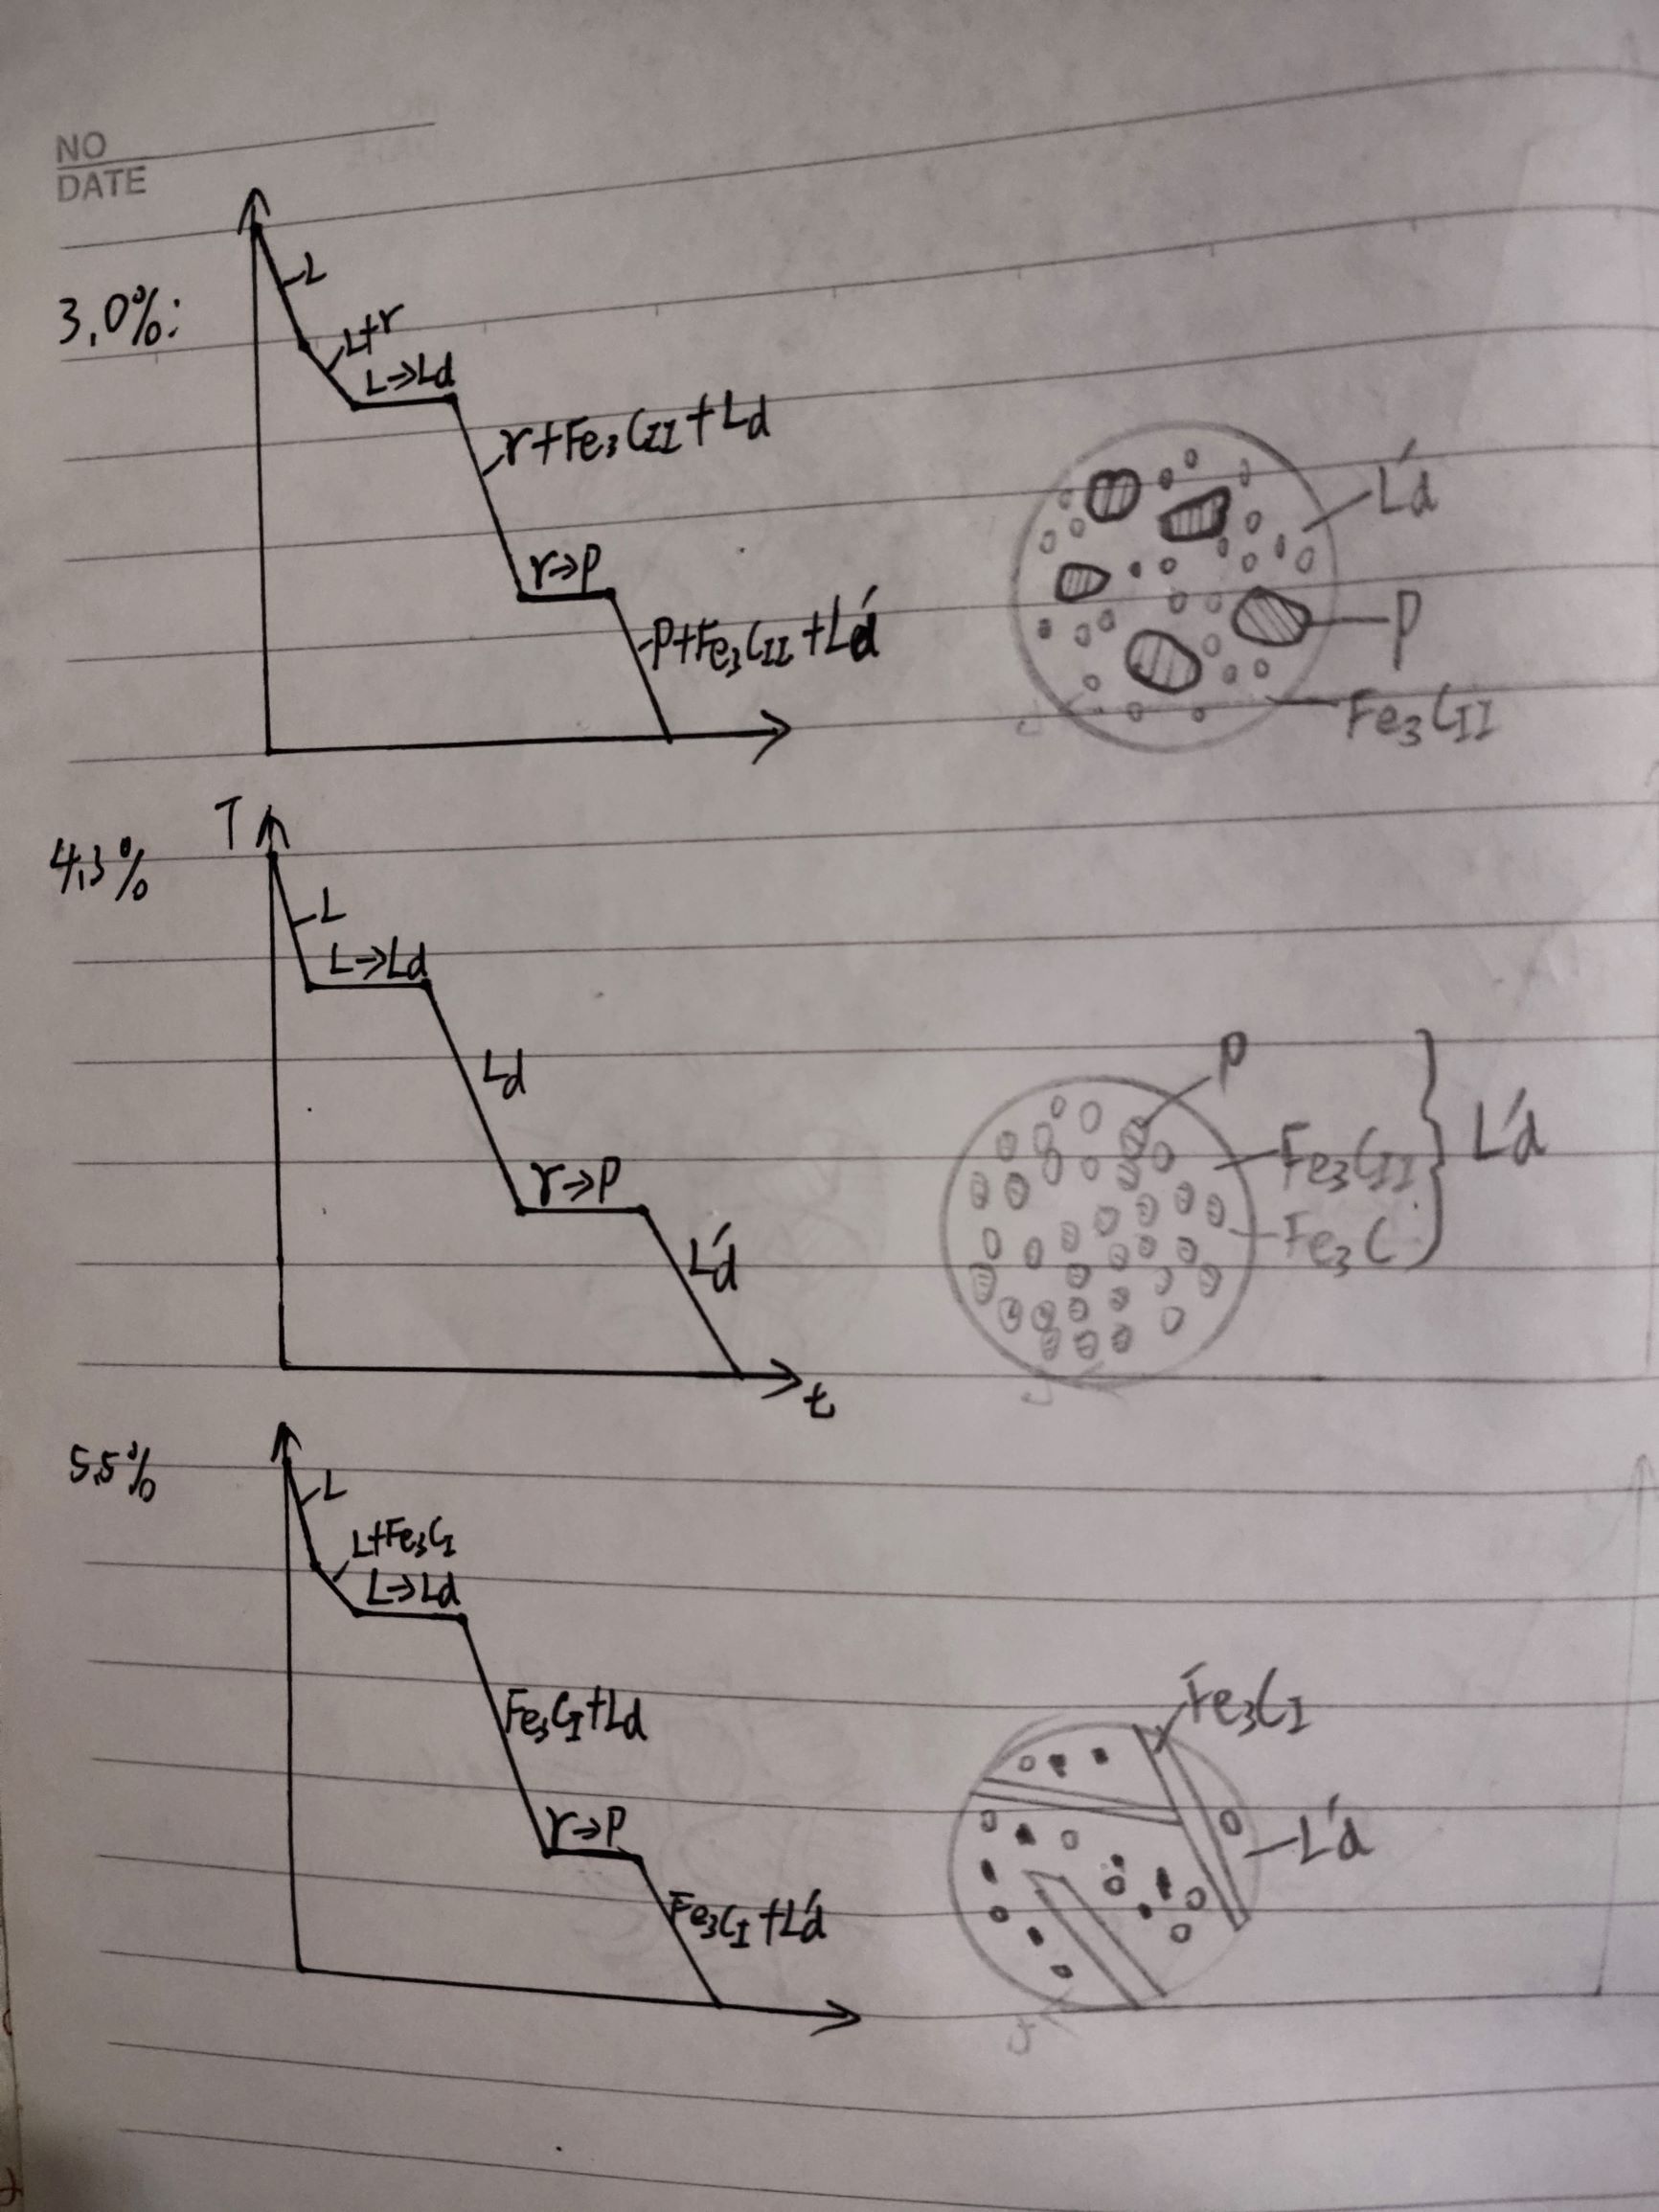 NO
DATE
3.0%:
L
L+r
L→Ld
r+Fe₃CII+Ld
r→P
P+Fe₃CII+L'd
L'd
P
Fe₃CII
4.3%
T
L
L→Ld
Ld
r→P
L'd
t
P
Fe₃CII
Fe₃C
L'd
5.5%
L
L+Fe₃CI
L→Ld
Fe₃CI+Ld
r→P
Fe₃CI+L'd
Fe₃CI
L'd